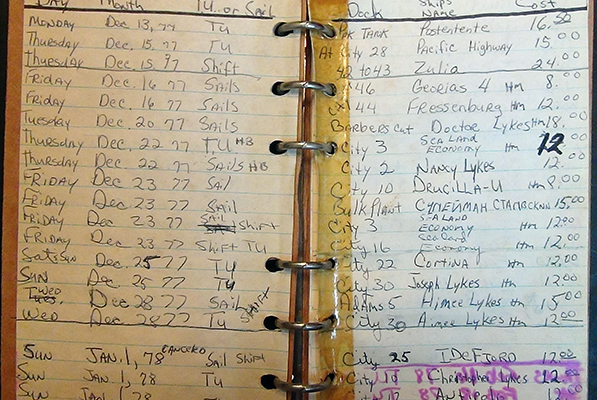 DAY Month TU..or Sail Dock Ships Name Cost
MONDAY Dec 13, 77 TU Tark Postentente 16.50
Thursday Dec, 15, 77 TU At City 28 Pacific Highway 15.00
Thursday Dec 15 97 Shift 42 to 43 Zulia 24.00
Friday Dec. 16 77 Sails 46 Georias 4 Hm 8.00
Friday Dec. 16 77 Sails 44 Fressenburg Hm 12.00
Tuesday Dec. 20 77 Sails Barbers Cut Doctor Lykes Hm 18.00
Thursday Dec. 22 77 TU HB City 3 Sea Land Economy Hm 12.00
Thursday Dec 22 77 Sails HB City 2 Nancy Lykes 12.00
FRIDAY Dec 23 77 Sail City 10 Drucilla-U Hm 8.00
Friday Dec. 23 77 Sail Bulk Plant 15.00
FRIDAY Dec 23 77 Shift City 3 Sea Land Economy Hm 12.00
Friday Dec. 23 77 Shift TU City 16 Sea Land Economy Hm 12.00
Sun Dec. 25 77 TU City 22 Cortina Hm 12.00
SUN Dec 26 77 TU City 30 Joseph Lykes Hm 12.00
Wed Dec 28 77 Sail Shift Adams 5 Aimee Lykes Hm 15.00
Wed Dec 28 77 TU City 30 Aimee Lykes Hm 12.00
Sun JAN. 1, 78 Canceled Sail Shift City 25 IDEFJORD 12.00
Sun JAN. 1, 78 TU City 19 Christopher Lykes 12.00
Sun JAN 1, 78 TU City